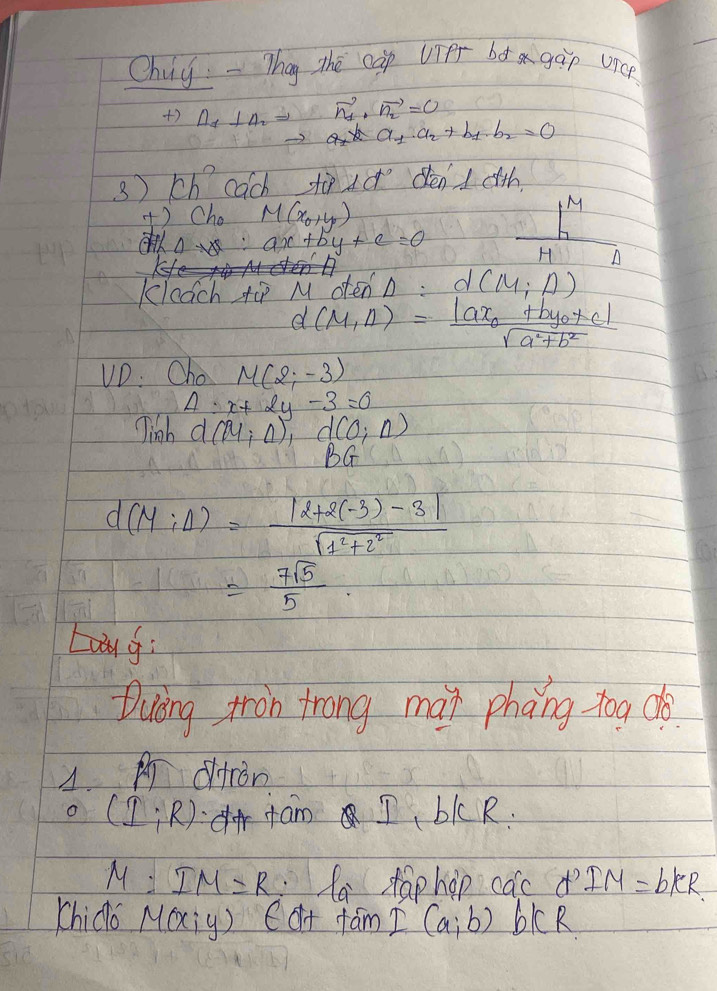 Chú ý: - Thay thế cặp VTPT bởi cặp VTCP.
+) Δ₁ ⊥ Δ₂ → n₁ . n₂ = 0
→ a₁.a₂ + b₁.b₂ = 0
3) Kh° cách từ 1 đ° đến 1 đth.
+) Cho M(x₀,y₀)
đth Δ : ax + by + c = 0
M
H Δ
K/cách từ M đến Δ : d(M; Δ)
d(M, Δ) = |ax₀ + by₀ + c| / √a²+b²
VD: Cho M(2; -3)
Δ : x + 2y - 3 = 0
Tính d(M; Δ), d(O; Δ)
BG
d(M; Δ) = |2+2(-3) - 3| / √1²+2²
= 7√5 / 5 .
Lưu ý:
Đường tròn trong mặt phẳng toạ độ.
1. PT đtròn
o (I; R): đtr tâm I, bk R.
M : IM = R. là tập hợp các đ° IM = bk R.
Khi đó M(x; y) ∈ đtr tâm I (a; b) bk R